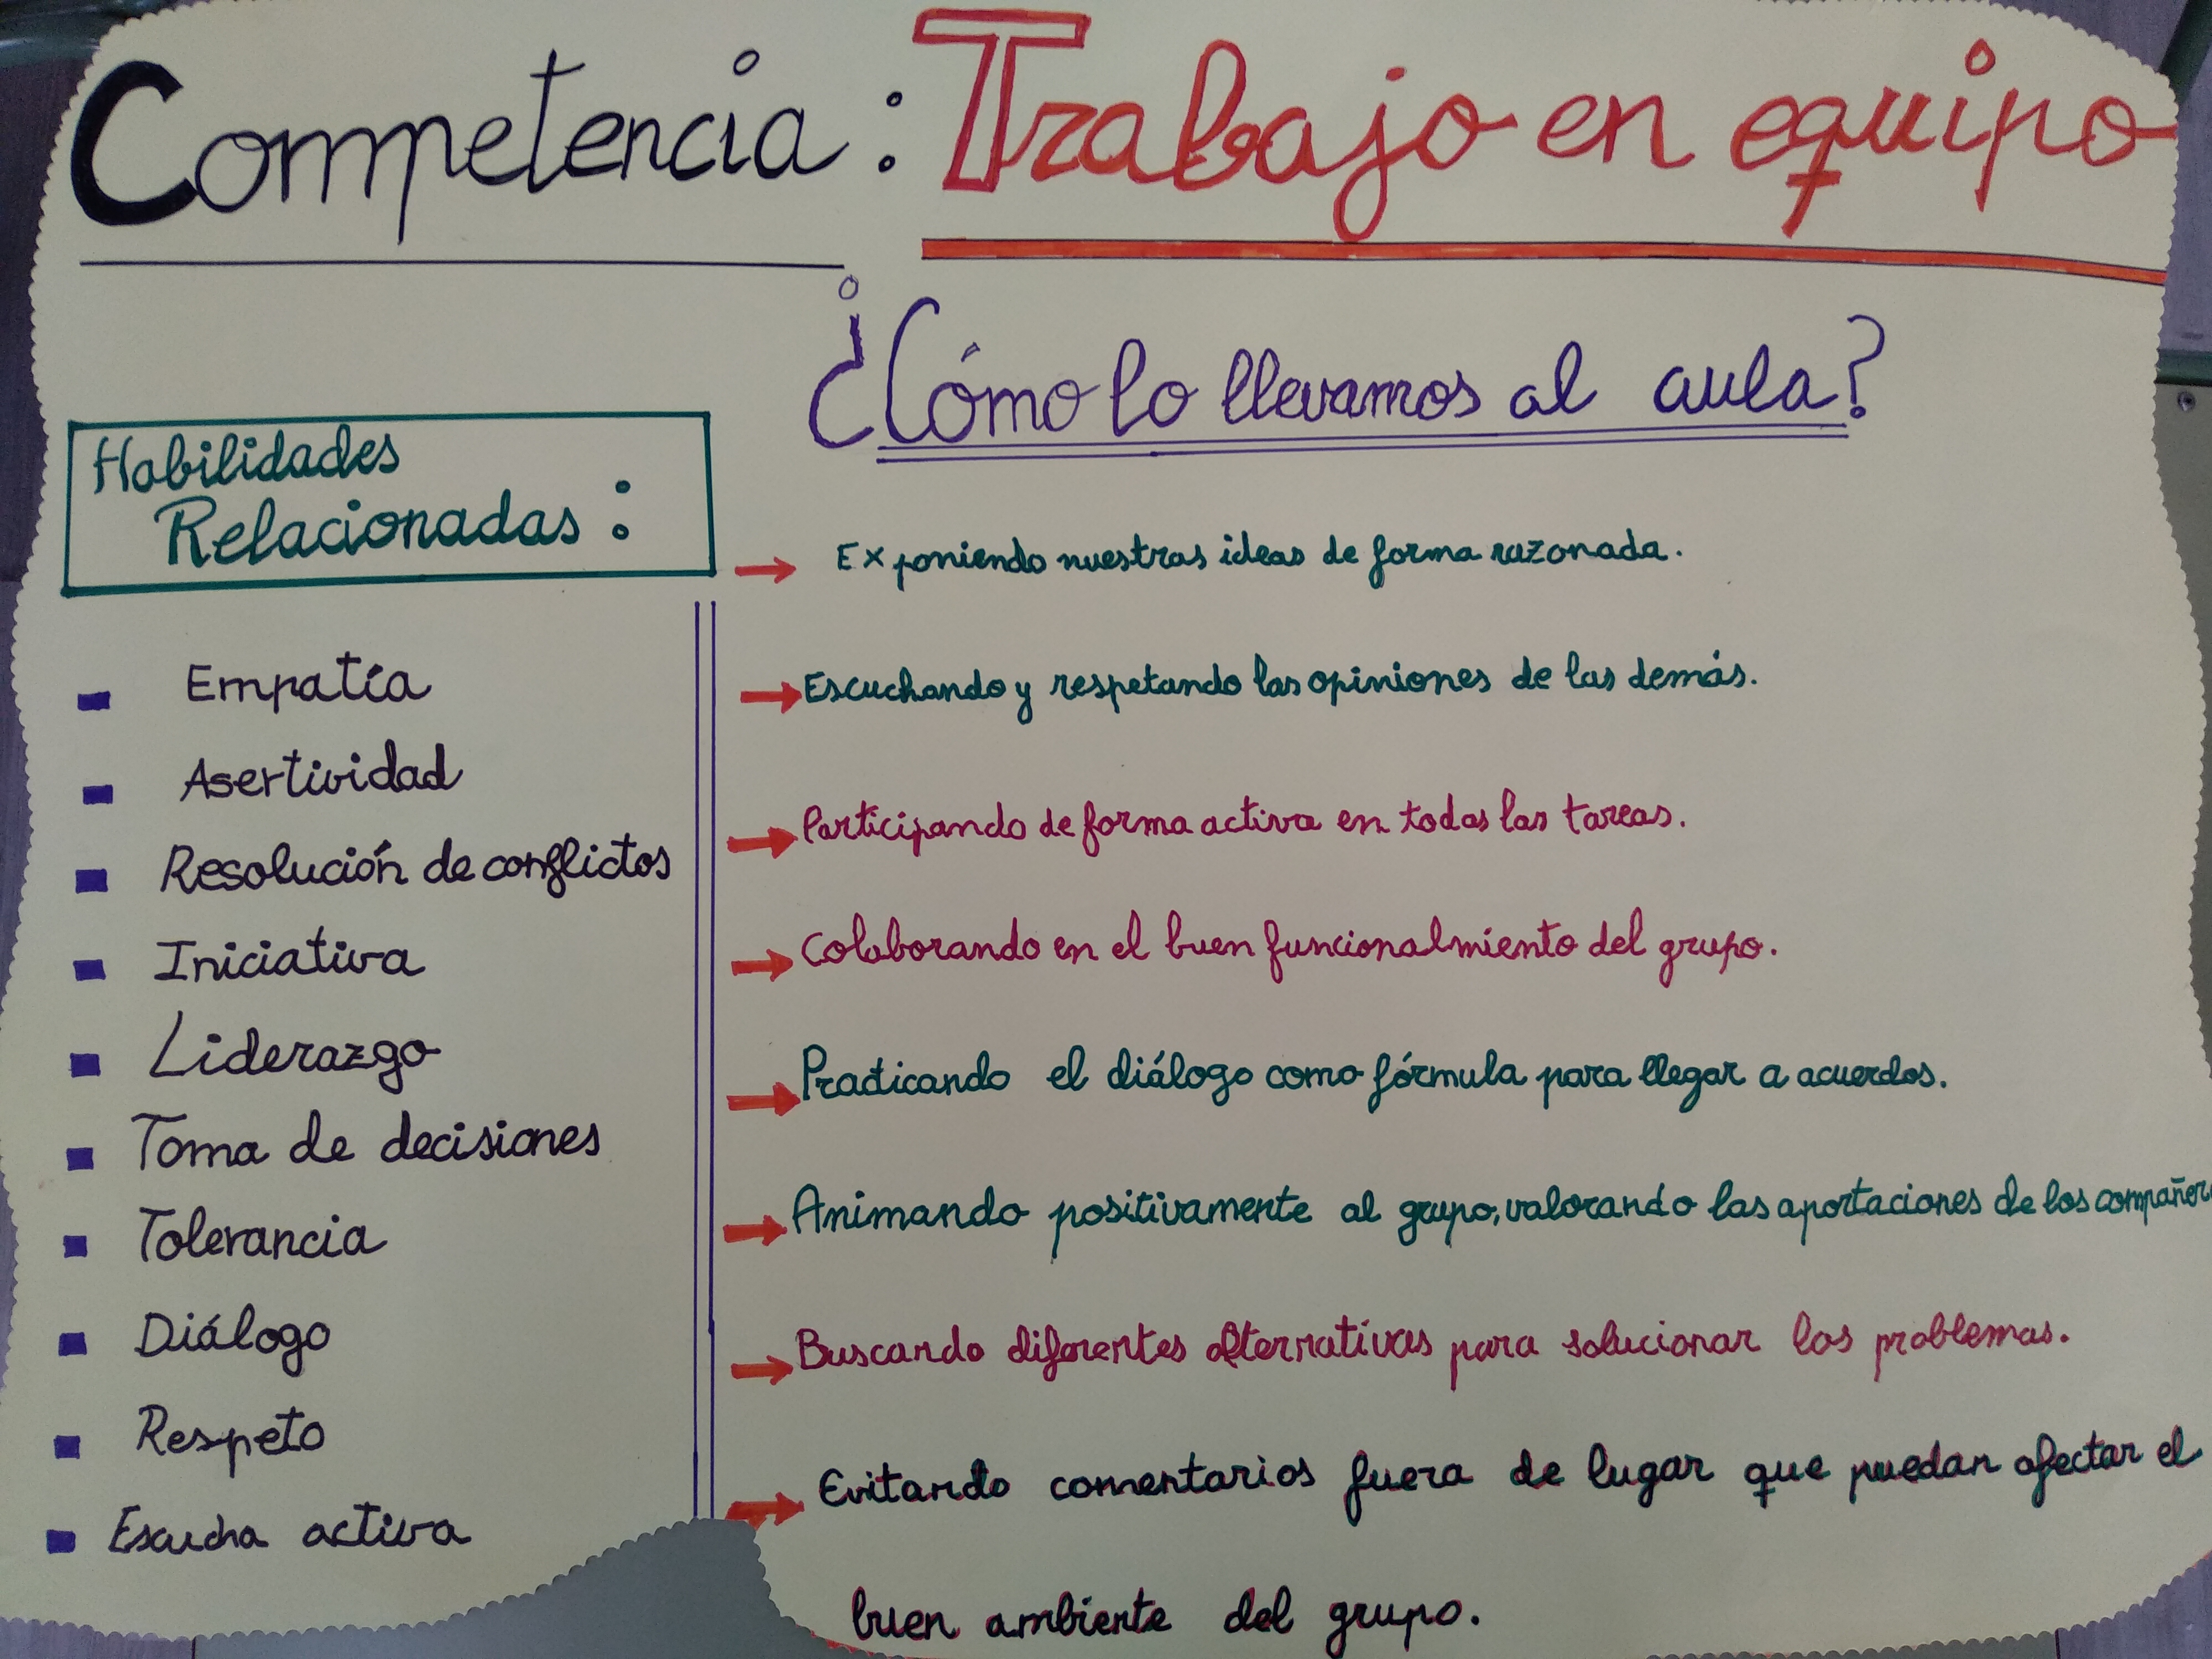 Competencia: Trabajo en equipo
¿Cómo lo llevamos al aula?
Habilidades
Relacionadas:
Empatía
Asertividad
Resolución de conflictos
Iniciativa
Liderazgo
Toma de decisiones
Tolerancia
Diálogo
Respeto
Escucha activa
→ Exponiendo nuestras ideas de forma razonada.
→ Escuchando y respetando las opiniones de las demás.
→ Participando de forma activa en todas las tareas.
→ Colaborando en el buen funcionalmiento del grupo.
→ Practicando el diálogo como fórmula para llegar a acuerdos.
→ Animando positivamente al grupo, valorando las aportaciones de los compañero
→ Buscando diferentes alternativas para solucionar los problemas.
→ Evitando comentarios fuera de lugar que puedan afectar el
buen ambiente del grupo.